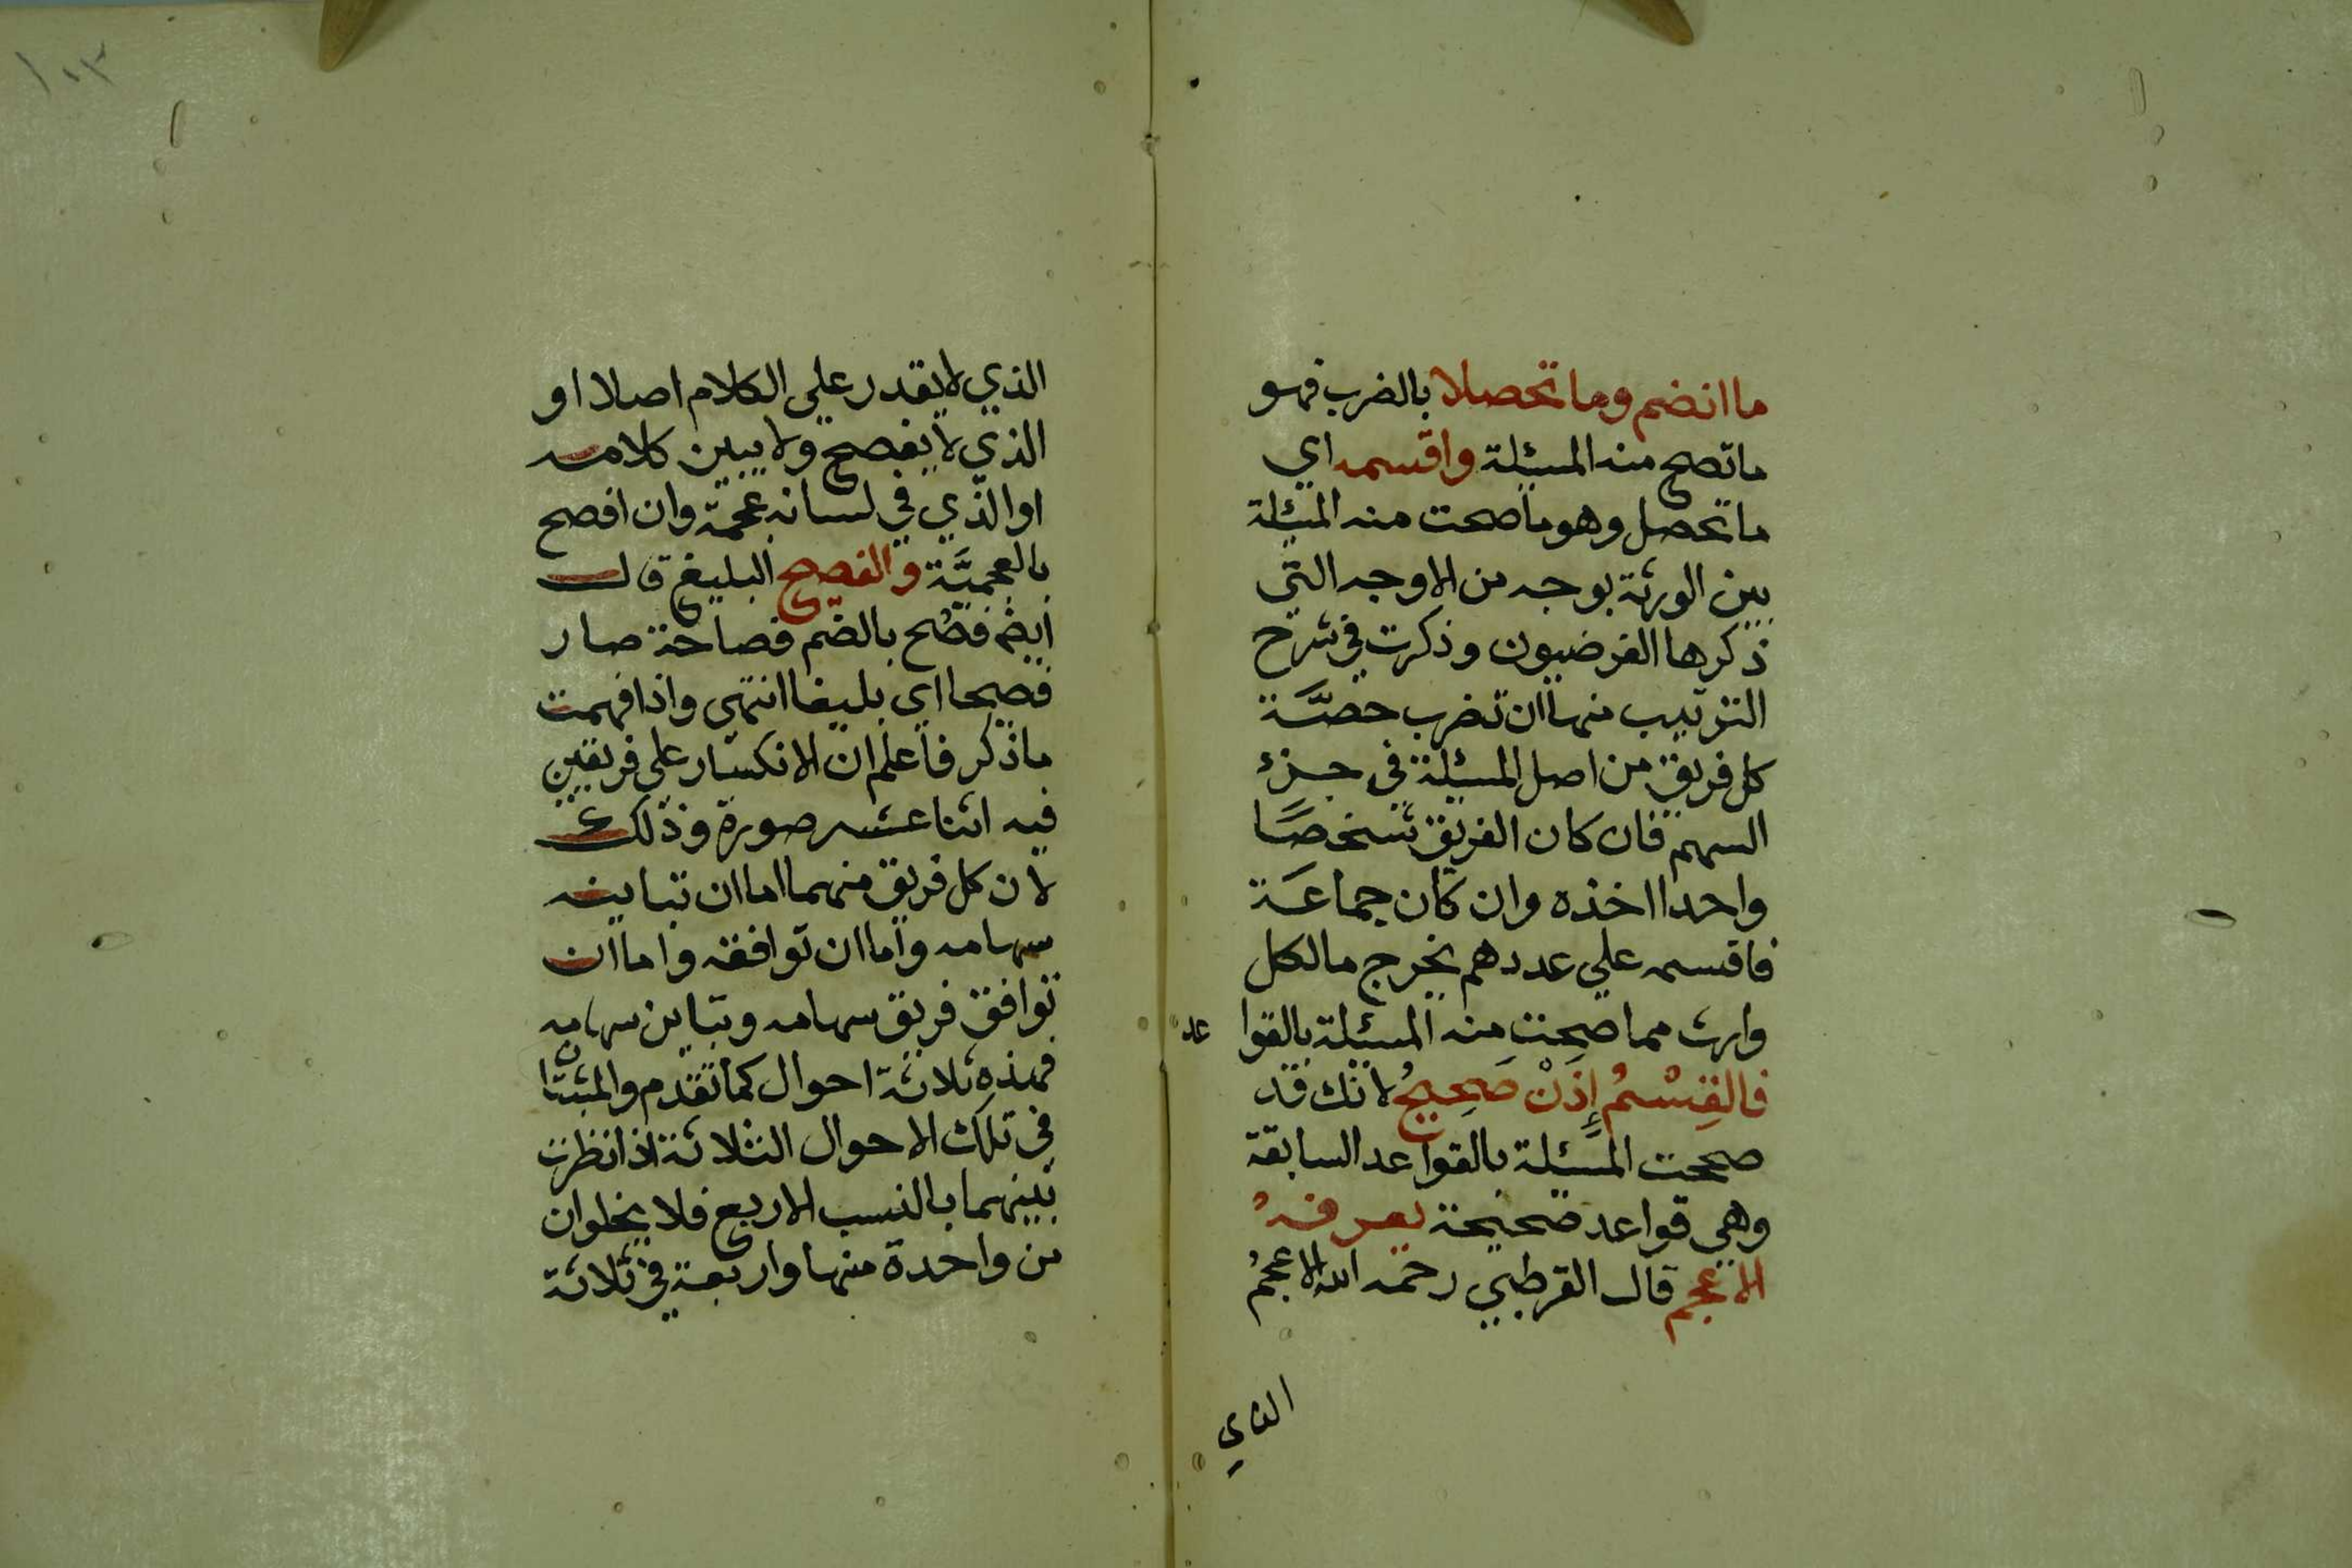 ما انضم وما تحصلا بالضرب فهو
ما تصح منه المسئلة واقسمه اي
ما تحصل وهو ما صحت منه المسئلة
بين الورثة بوجه من الاوجه التي
ذكرها الفرضيون وذكرت في شرح
الترتيب منها ان تضرب حصَّة
كل فريق من اصل المسئلة في جزء
السهم فان كان الفريق شخصًا
واحدا اخذه وان كان جماعَة
فاقسمه علي عددهم يخرج مالكل
وارث مما صحت منه المسئلة بالقوا عد
فالقِسْمُ إِذَنْ صَحِيحُ لانك قد
صححت المسئلة بالقواعد السابقة
وهي قواعد صحيحة يعرفهُ
الاعجم قال القرطبي رحمه الله الاعجمُ
الذي
١٠٣
الذي لا يقدر علي الكلام اصلا او
الذي لا يفصح ولا يبين كلامه
او الذي في لسانه عجمة وان افصح
بالعجميَّة والفصيح البليغ قال
ايضً فصُح بالضم فصاحة صار
فصيحا اي بليغا انتهي واذا فهمت
ما ذكر فاعلم ان الانكسار علي فريقين
فيه اثنا عشر صورة وذلك
لان كل فريق منهما اما ان تباينه
سهامه واما ان توافقه واما ان
توافق فريق سهامه وتباين سهامه
فهذه ثلاثة احوال كما تقدم والمثبتان
في تلك الاحوال الثلاثة اذا نظرت
بينهما بالنسب الاربع فلا يخلوان
من واحدة منها واربعة في ثلاثة